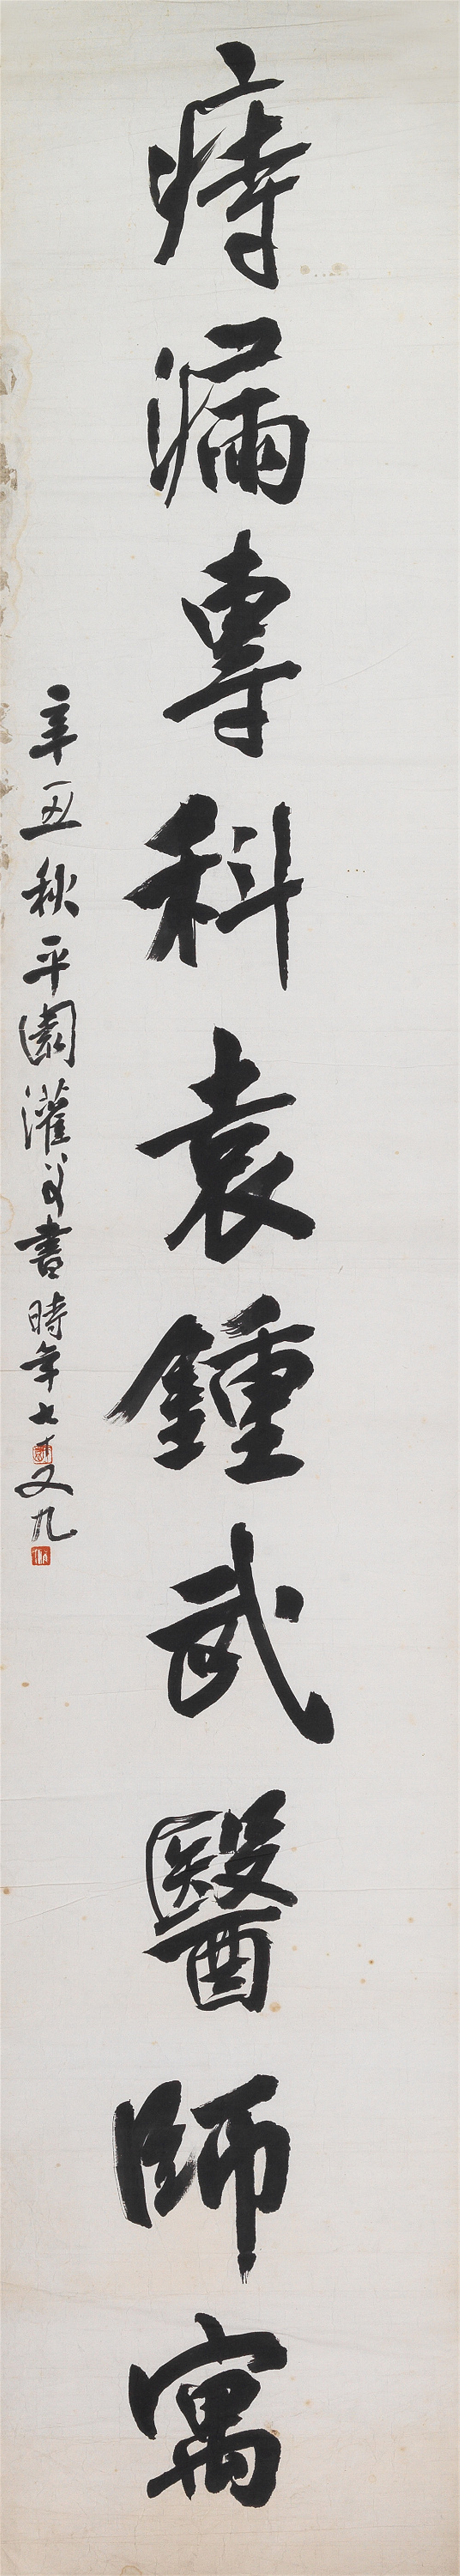 痔漏專科袁鍾武醫師寓
辛丑秋平園灌叟書時年七十又九